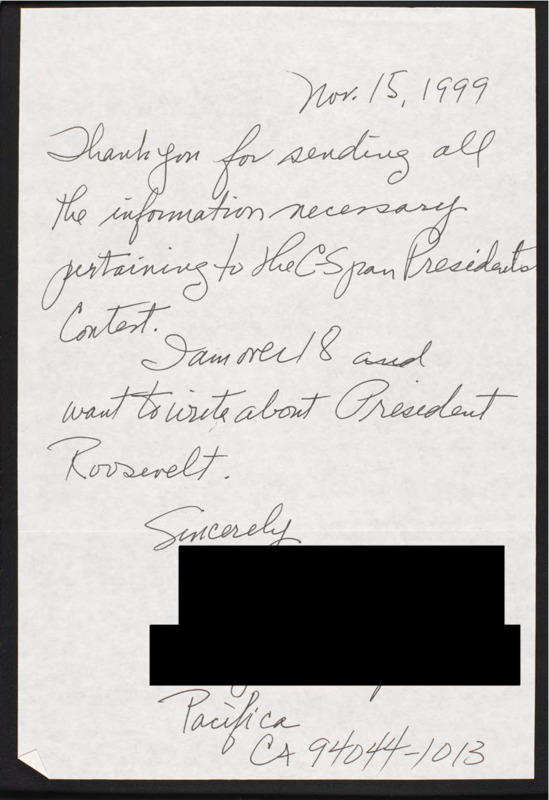 Nov. 15, 1999
Thank you for sending all
the information necessary
pertaining to the C-Span Presidents
Contest.
I am over 18 and
want to write about President
Roosevelt.
Sincerely
Pacifica
CA 94044-1013